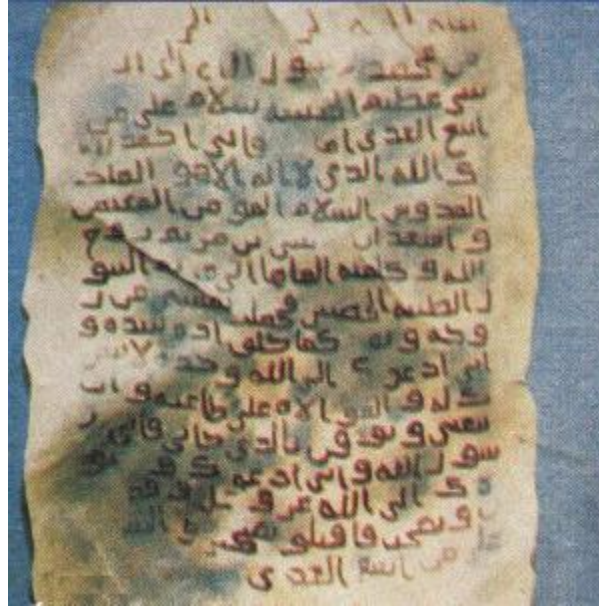 بسم ا
من محمد رسول الله الى ال
شي عظيم الحبشة سلام على من
اتبع الهدى اما فاني احمد
الله الذي لا اله الا هو الملك
القدوس السلام المؤمن المهيمن
و اشهد ان عيسى بن مريم روح
الله و كلمته القاها الى مريم البتو
ل الطيبة الحصينة فحملت بعيسى من ر
وحه و كما خلق ادم بيده و
اني ادعوك الى الله وحده لا شر
يك له و الموالاة على طاعته و ان
تتبعني و توقن بالذي جاني فاني ر
سول الله و اني ادعوك و
ك الى الله عز و جل و قد
و نصحت فاقبلوا نصيحتي و الس
من اتبع الهدى